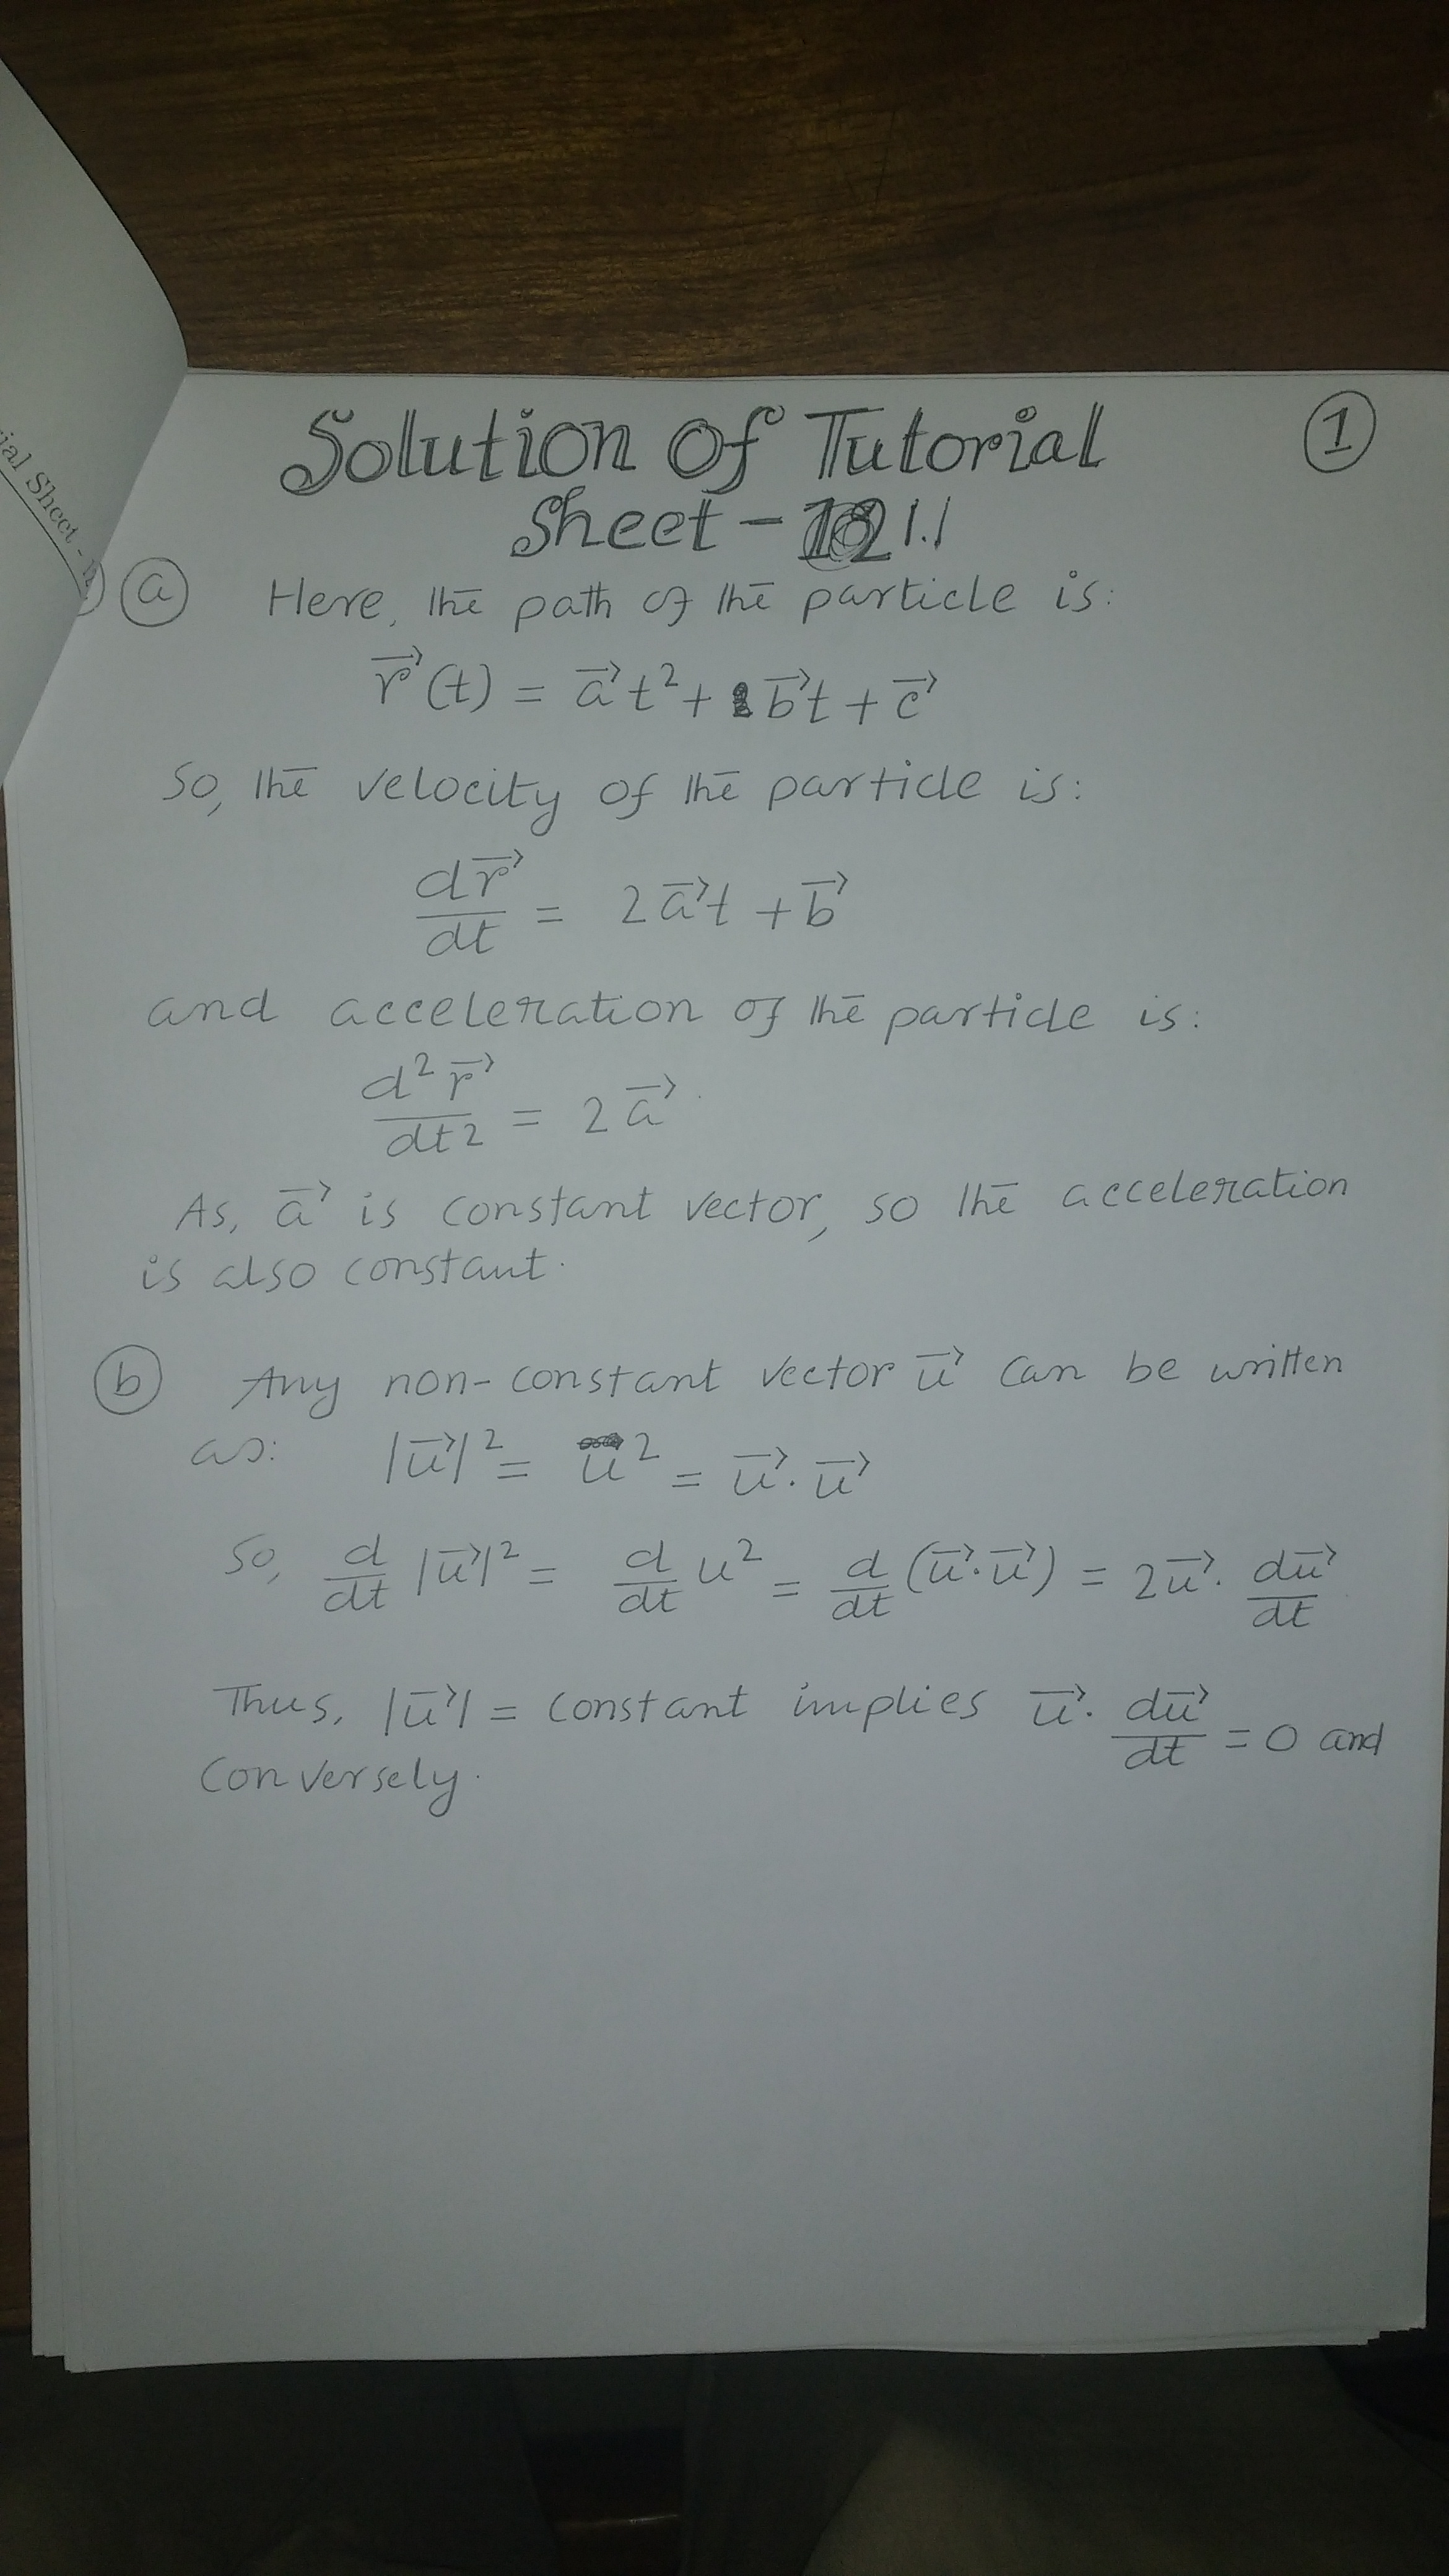 ial Sheet -
Solution of Tutorial
1
Sheet - 11
a Here, the path of the particle is:
r⃗(t) = a⃗t² + b⃗t + c⃗
So, the velocity of the particle is:
dr⃗/dt = 2a⃗t + b⃗
and acceleration of the particle is:
d²r⃗/dt² = 2a⃗
As, a⃗ is constant vector, so the acceleration
is also constant.
b Any non-constant vector u⃗ can be written
as: |u⃗|² = u² = u⃗.u⃗
So, d/dt |u⃗|² = d/dt u² = d/dt (u⃗.u⃗) = 2u⃗. du⃗/dt
Thus, |u⃗| = constant implies u⃗. du⃗/dt = 0 and
Conversely.